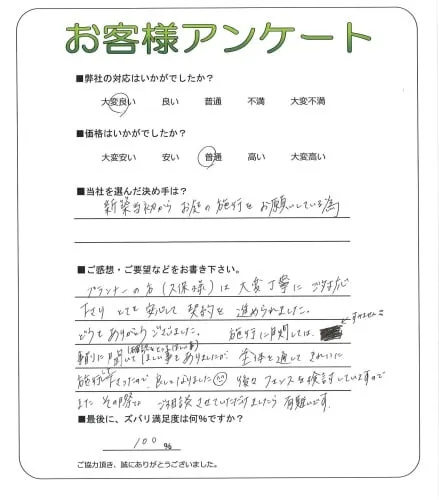 お客様アンケート
■弊社の対応はいかがでしたか?
大変良い 良い 普通 不満 大変不満
■価格はいかがでしたか?
大変安い 安い 普通 高い 大変高い
■当社を選んだ決め手は?
新築当初からお庭の施行をお願いしている為
■ご感想・ご要望などをお書き下さい。
プランナーの方(久保様)は大変丁寧にご対応
下さりとても安心して契約を進められました。
どうもありがとうございました。 施行に関しては、
すみません
(確認をしてほしい事)
事前に聞いてほしい事もありましたが 全体を通してきれいに
施行下さったので、良しとなりました 後々フェンスを検討していますので
またその際はご相談させていただけましたら有難いです。
■最後に、ズバリ満足度は何%ですか?
100 %
ご協力頂き、誠にありがとうございました。